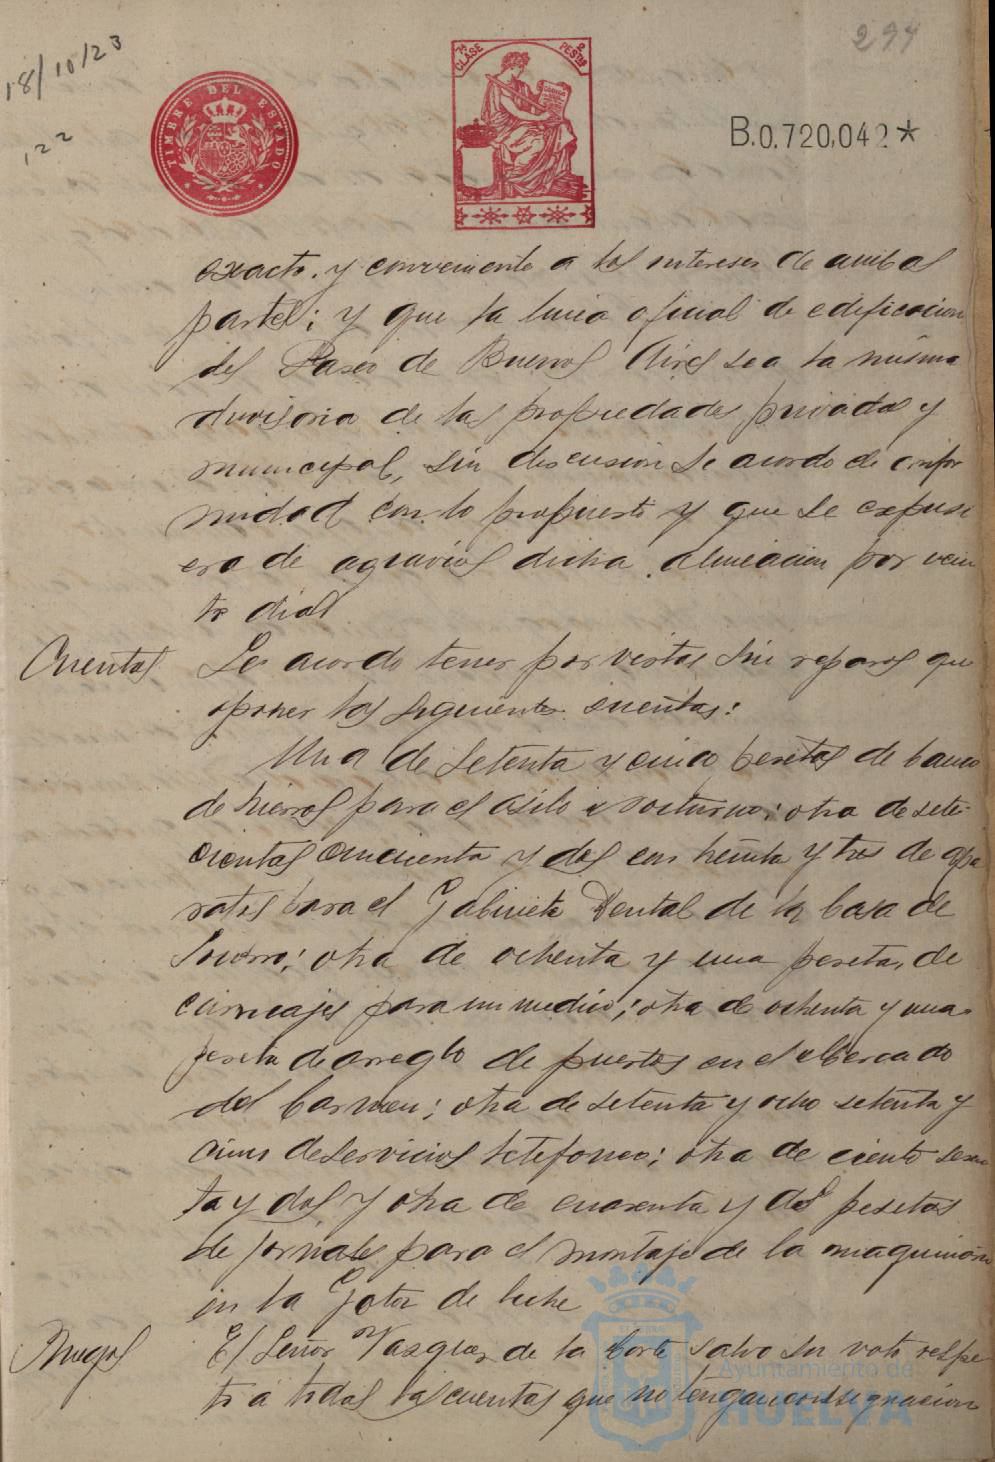 18/10/23
122
TIMBRE DEL ESTADO
7ª CLASE 2 PESETAS
294
B.0.720,042*
exacto y conveniente a los intereses de ambas
partes; y que la linea oficial de edificacion
del Paseo de Buenos Aires sea la misma
divisoria de las propiedades privadas y
municipal, sin discusion se acordo de confor
midad con lo propuesto y que se expusi
era de agravios dicha alineacion por vein
te dias
Cuentas Se acordo tener por vistas sin reparos que
oponer las siguientes cuentas:
Una de setenta y cinco pesetas de banco
de hierros para el asilo nocturno; otra de sete
cientas cincuenta y dos con treinta y tres de apa
ratos para el Gabinete Dental de la Casa de
Socorro; otra de ochenta y una peseta, de
carruajes para un medico; otra de ochenta y una
peseta de arreglo de puertas en el Mercado
del Carmen; otra de setenta y ocho setenta y
cinco de servicios telefonico; otra de ciento sesen
ta y dos y otra de cuarenta y dos pesetas
de jornales para el montaje de la maquinaria
en la Gota de leche
Pagos El Señor Vazquez de la Corte salvo su voto respec
to a todas las cuentas que no tengan consignacion
Ayuntamiento de
HUELVA